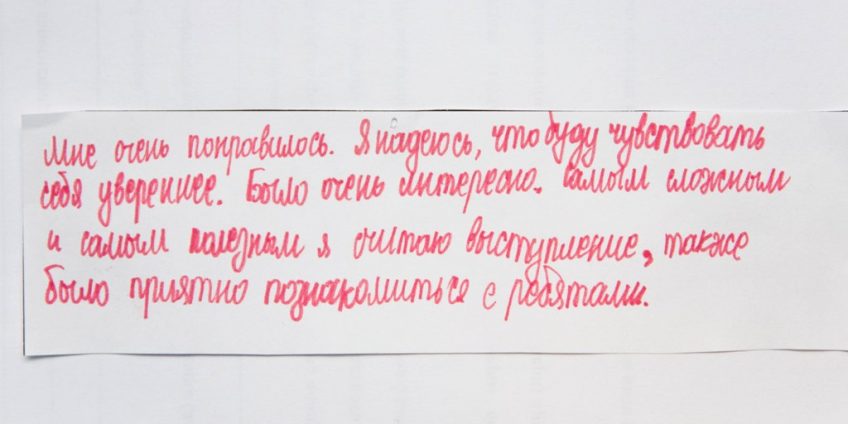 Мне очень понравилось. Я надеюсь, что буду чувствовать
себя увереннее. Было очень интересно. Самым сложным
и самым полезным я считаю выступление, также
было приятно познакомиться с ребятами.